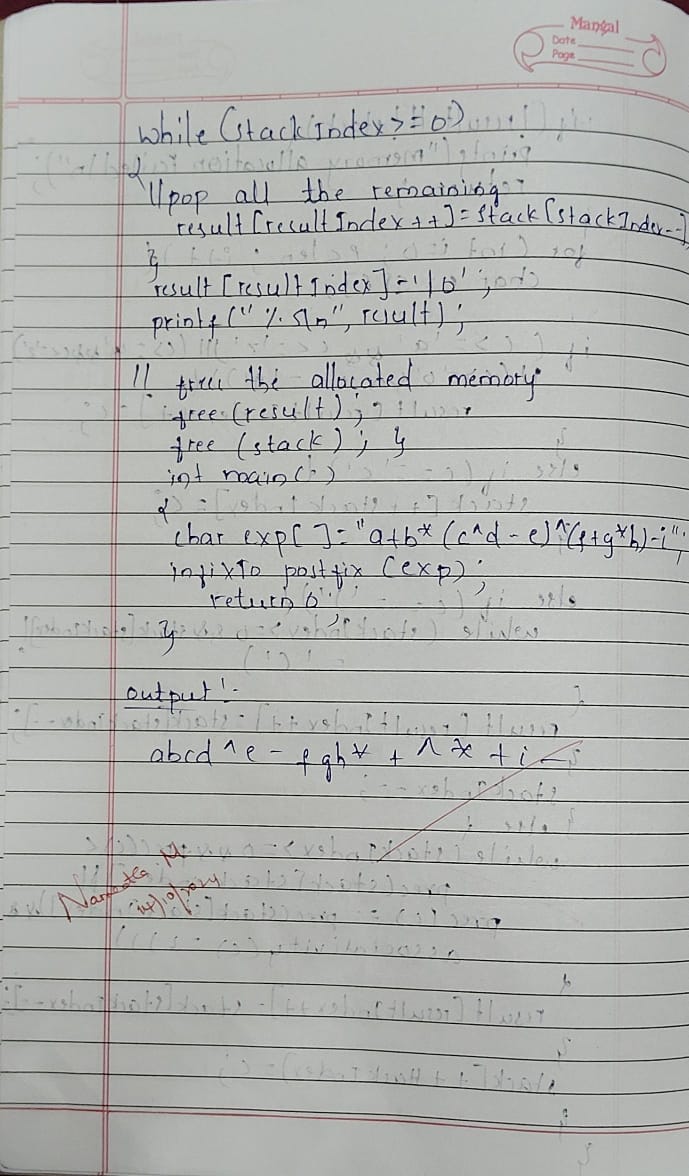 Mangal
Date
Page
while (stackIndex>=0)
{
// pop all the remaining
result[resultIndex++]=stack[stackIndex--]
}
result[resultIndex]='\0';
printf("%s\n", result);
// free the allocated memory
free(result);
free (stack); }
int main()
{
char exp[ ]="a+b*(c^d-e)^(f+g*h)-i";
infixTo postfix (exp);
return 0;
}
output:-
abcd^e-fgh*+^*+i-
Namrata M